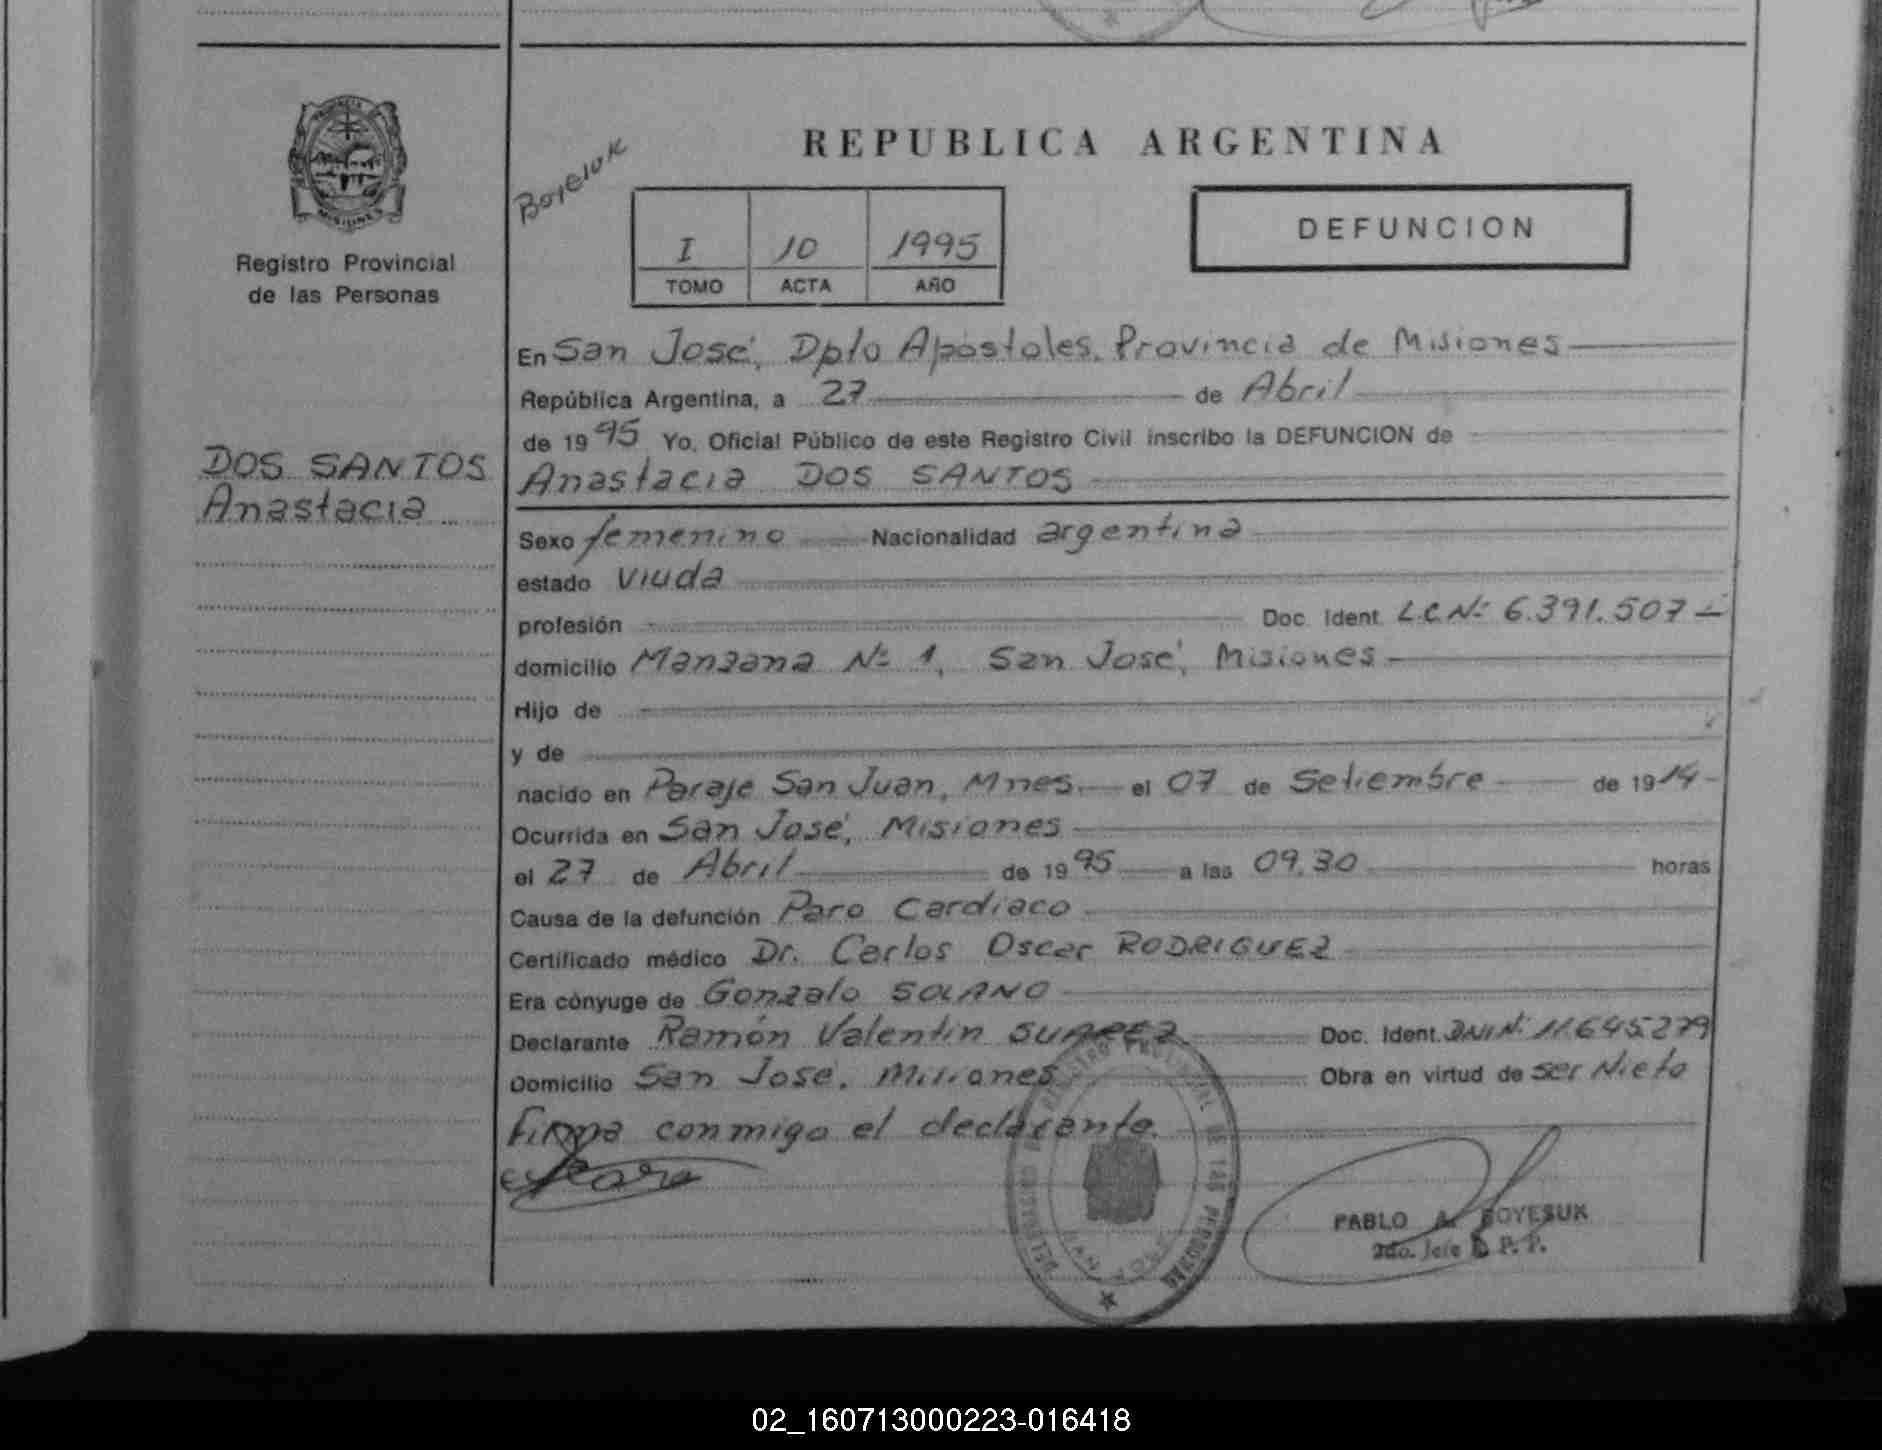 PROVINCIA
MISIONES
Registro Provincial
de las Personas
DOS SANTOS
Anastacia
Boyeiuk
REPUBLICA ARGENTINA
I 10 1995
TOMO ACTA AÑO
DEFUNCION
En San José, Dpto Apóstoles, Provincia de Misiones
República Argentina, a 27 de Abril
de 1995 Yo, Oficial Público de este Registro Civil inscribo la DEFUNCION de
Anastacia DOS SANTOS
Sexo femenino Nacionalidad argentina
estado viuda
profesión Doc. Ident. L.C.Nº 6.391.507
domicilio Manzana Nº 1, San José, Misiones
Hijo de
y de
nacido en Paraje San Juan, Mnes. el 07 de Setiembre de 1914
Ocurrida en San José, Misiones
el 27 de Abril de 1995 a las 09.30 horas
Causa de la defunción Paro Cardíaco
Certificado médico Dr. Carlos Oscar RODRIGUEZ
Era cónyuge de Gonzalo SOLANO
Declarante Ramón Valentín SUAREZ Doc. Ident. DNI Nº 11.645.279
Domicilio San José, Misiones Obra en virtud de ser Nieto
Firma conmigo el declarante.
PABLO A. BOYESUK
2do. Jefe R. P. P.
02_160713000223-016418